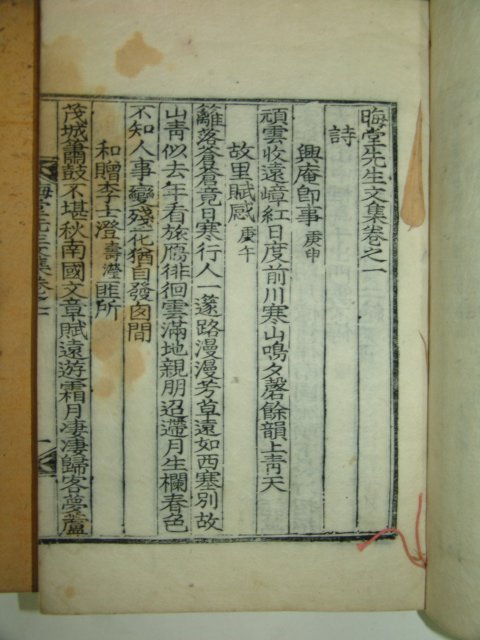 晦堂先生文集卷之一
詩
興庵卽事 庚申
頑雲收遠嶂紅日度前川寒山鳴夕磬餘韻上靑天
故里賦感 庚午
籬落蒼蒼竟日寒行人一邃路漫漫芳草遠如西塞別故
山靑似去年看旅鴈徘徊雲滿地親朋迢遰月生欄春色
不知人事變殘花猶自發囱間
和贈李士澄 壽瀅 匪所
茂城簫鼓不堪秋南國文章賦遠遊霜月凄凄歸客夢蘆